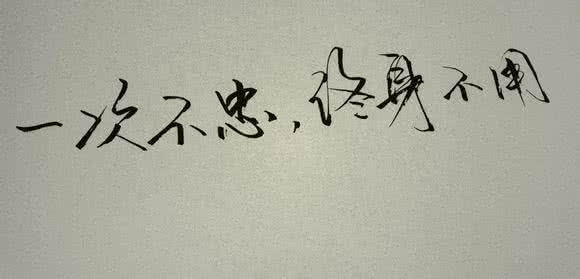 一次不忠，终身不用